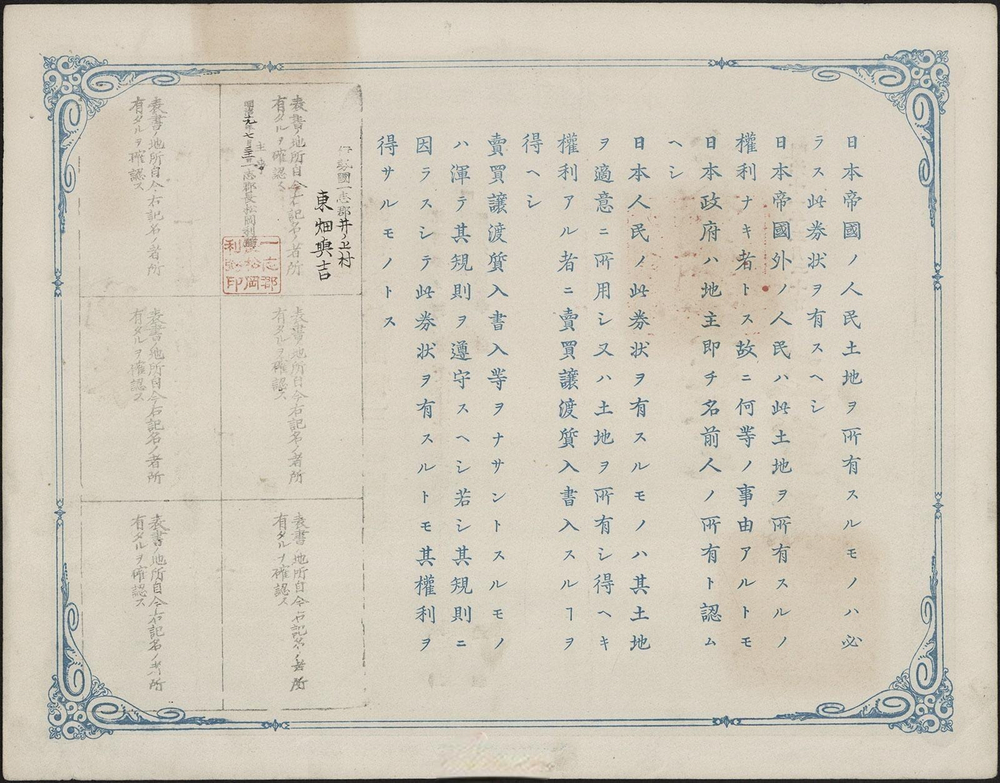 日本帝國ノ人民土地ヲ所有スルモノハ必
ラス此券状ヲ有スヘシ
日本帝國外ノ人民ハ此土地ヲ所有スルノ
權利ナキ者トス故ニ何等ノ事由アルトモ
日本政府ハ地主即チ名前人ノ所有ト認ム
ヘシ
日本人民ノ此券状ヲ有スルモノハ其土地
ヲ適意ニ所用シ又ハ土地ヲ所有シ得ヘキ
權利アル者ニ賣買讓渡質入書入スルヿヲ
得ヘシ
賣買讓渡質入書入等ヲナサントスルモノ
ハ渾テ其規則ヲ遵守スヘシ若シ其規則ニ
因ラスシテ此券状ヲ有スルトモ其權利ヲ
得サルモノトス
國一志郡井ノ上村
東畑與吉
表書ノ地所自今右記名ノ者所
有タルヲ確認ス
一志郡長松岡利
一志郡
長松岡
利 印
表書ノ地所自今右記名ノ者所
有タルヲ確認ス
表書ノ地所自今右記名ノ者所
有タルヲ確認ス
表書ノ地所自今右記名ノ者所
有タルヲ確認ス
表書ノ地所自今右記名ノ者所
有タルヲ確認ス
表書ノ地所自今右記名ノ者所
有タルヲ確認ス